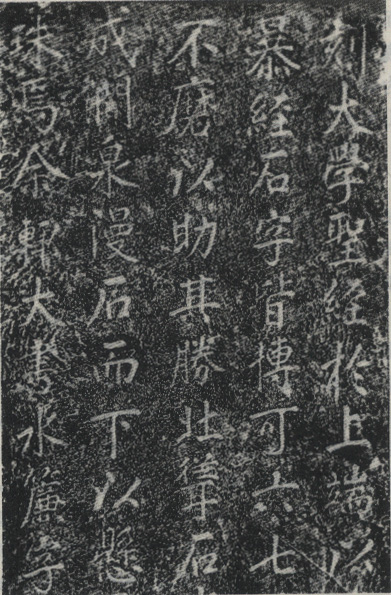 刻大學聖經於上端以
暴經石字皆博可六七
不磨以助其勝北石
成澗泉漫石而下以懸
珠焉余輒大書水簾字